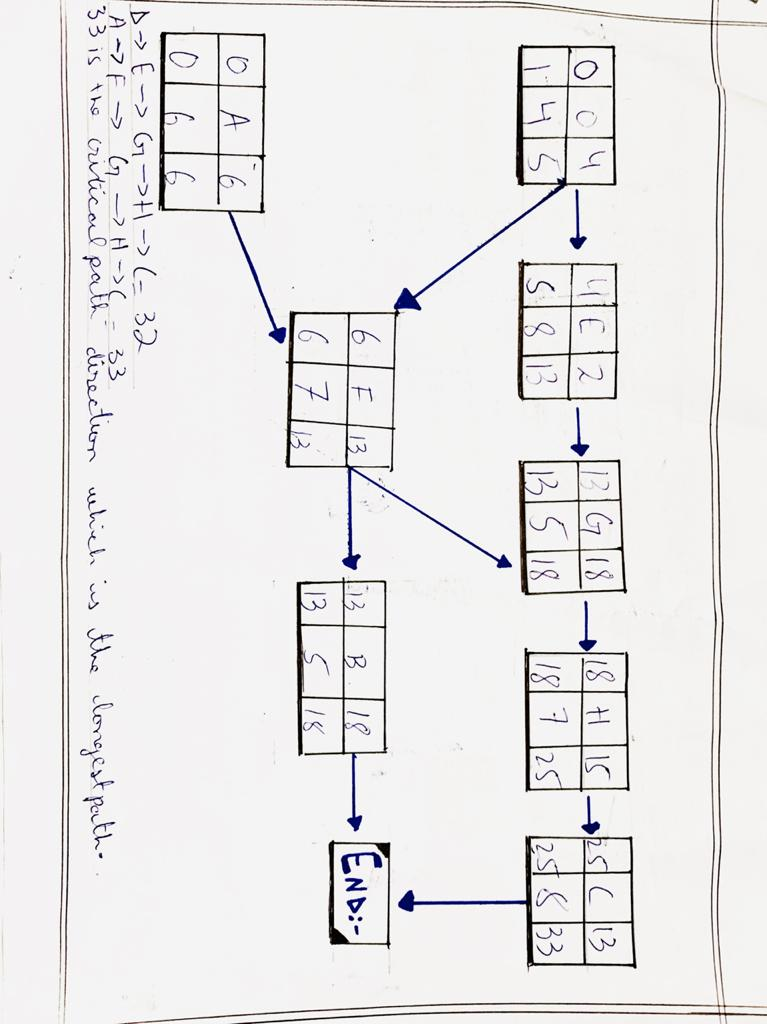 0 0 4
1 4 5
4 E 2
5 8 13
13 G 18
13 5 18
18 H 15
18 7 25
25 C 13
25 8 33
6 F 13
6 7 13
13 B 18
13 5 18
END:-
0 A 6
0 6 6
D → E → G → H → C = 32
A → F → G → H → C = 33
33 is the critical path direction which is the longest path.